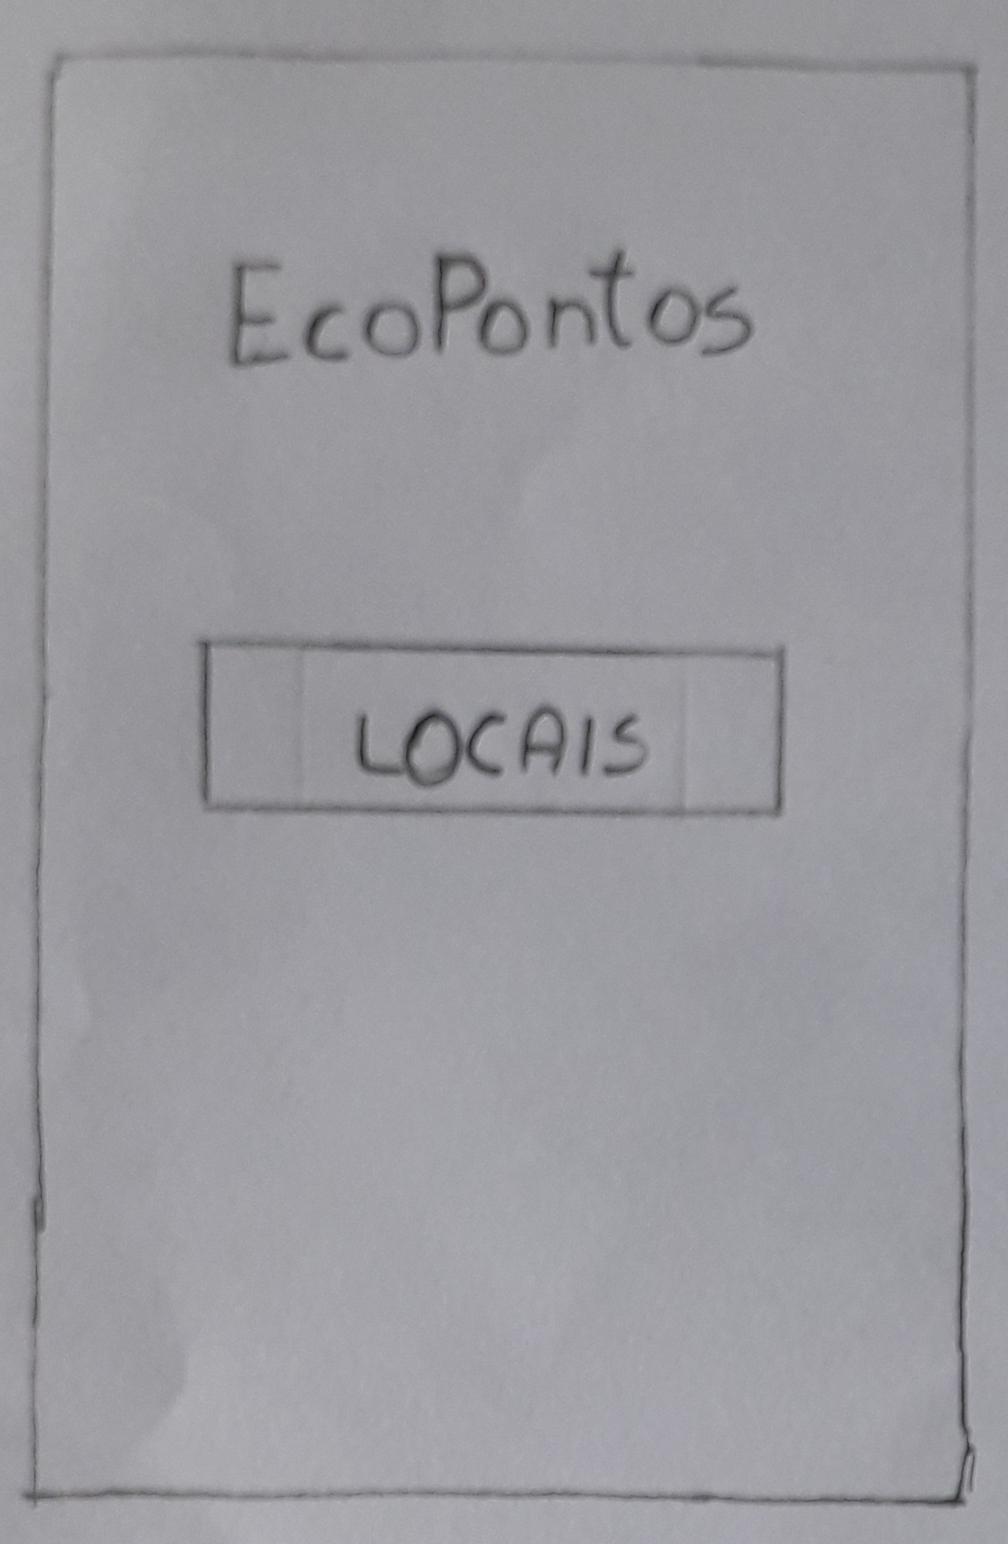 EcoPontos
LOCAIS